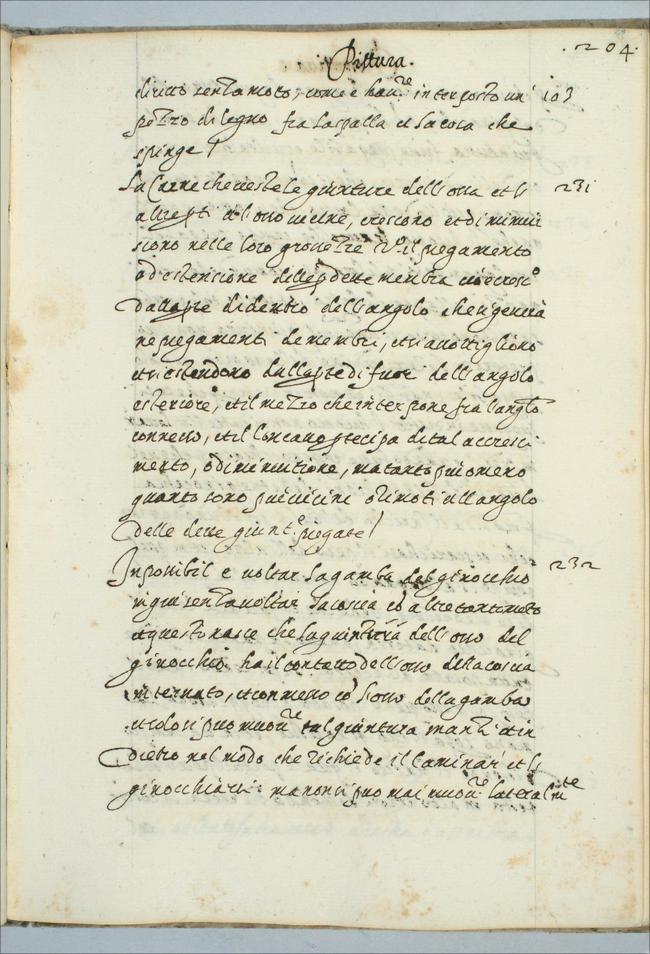 Pittura.
.204.
diritto senza moto, come è hau.re interposto un' 103
pezzo di legno fra la spalla et la cosa che
spinge /
La Carne che ueste le giunture dell'ossa et li 231
altre pti all'osso uicine, crescono et diminui
scono nelle loro grossezze p il piegamento
od estensione delle pdette membra cioè cresc.o
dalla pte di dentro dell'angolo che si genera
ne piegamenti de membri, et s'assottigliono
et si estendono dalla pte di fuori dell'angolo
esteriore, et il mezzo che interpone fra l'angl.o
connesso, et il concauo ptecipa di tal accresci
mento, o diminuitione, ma tanto piu o meno
quanto sono piu uicini o rimoti all'angolo
delle dette giunt.e piegate /
Inposibil è uoltar la gamba dal ginocchio 232
in giu senza uoltar la coscia cō altretanto moto
et questo nasce che la giuntura dell'osso del
ginocchio ha il contatto dell'osso della coscia
internato, et commesso cō l'osso della gamba
et solo si puo muou.re tal giuntura inanzi et in
dietro nel modo che richiede il Caminar' et li
ginocchiarsi: ma non si puo mai muou.re lateralm.te